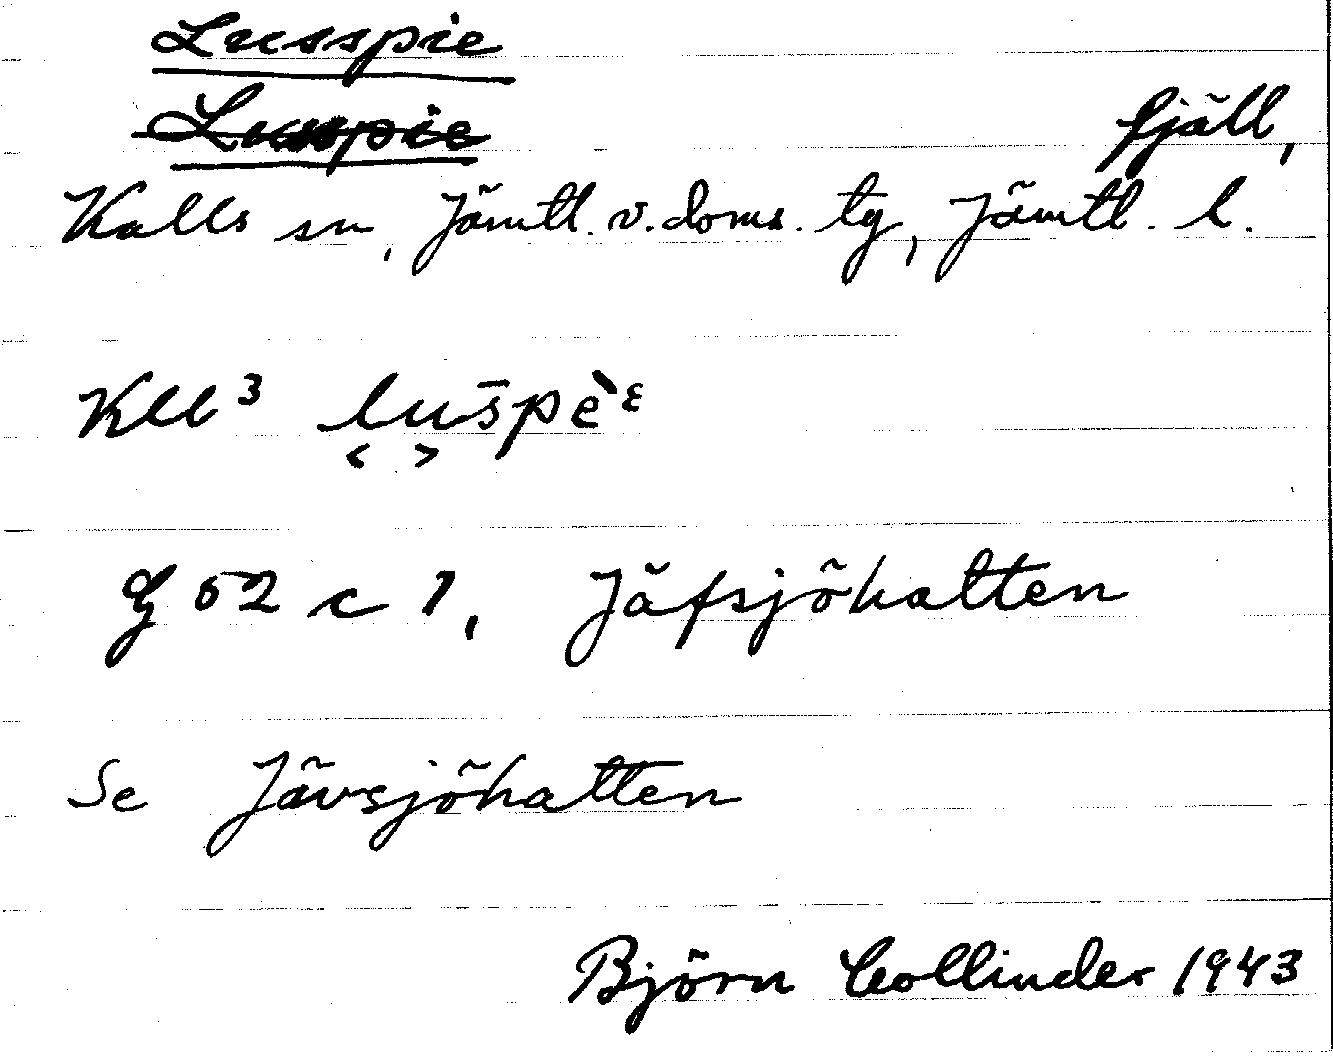 Lusspie
Lusspie fjäll,
Kalls sn, Jämtl. v. doms. tg, Jämtl. l.
Kll³ lus̄pèᵋ
G 52 c 1, Jäfsjöhatten
Se Jävsjöhatten
Björn Collinder 1943